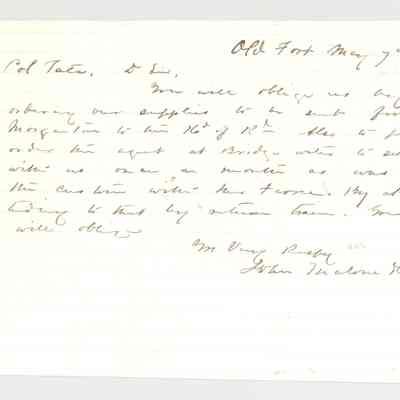 Old Fort May 7
Col Tate, D Sir,
You will oblige us by
ordering our supplies to be sent from
Morganton to the Hd of Rd. Also to
order the agent at Bridge water to
with us once a month as was
the custom with By at
tending to that by return train. You
will oblige
Yrs Very Respy
John Malone